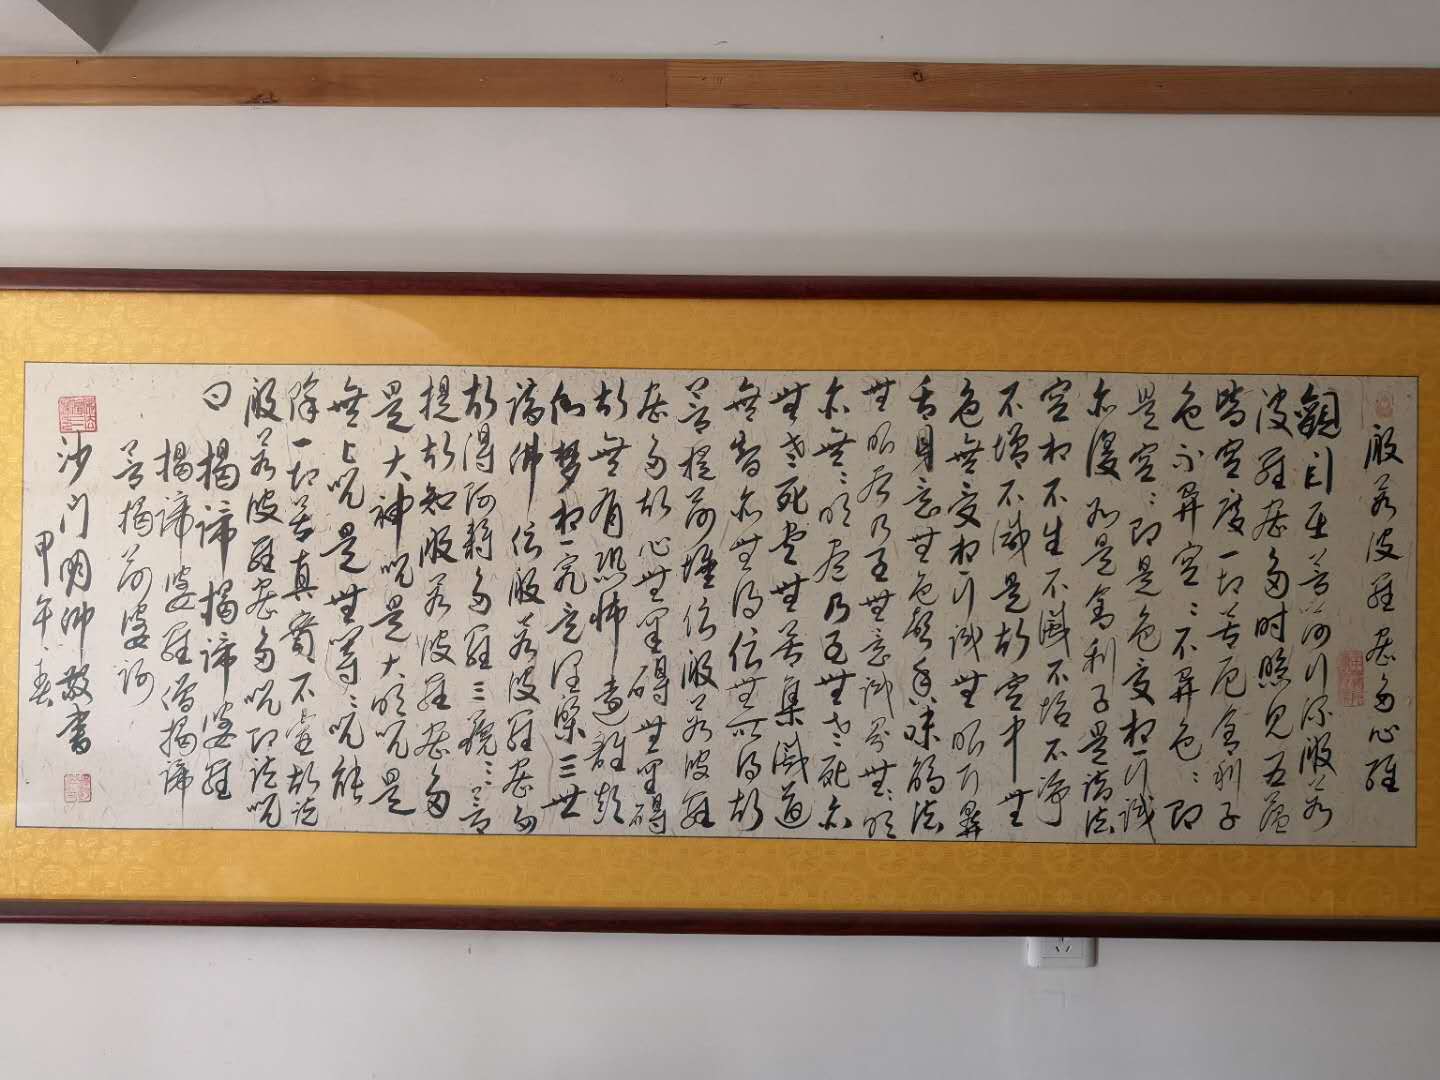 般若波羅蜜多心經
觀自在菩薩行深般若
波羅蜜多時照見五蘊
皆空度一切苦厄舍利子
色不異空〻不異色〻即
是空〻即是色受想行識
亦復如是舍利子是諸法
空相不生不滅不垢不淨
不增不減是故空中無
色無受想行識無眼耳鼻
舌身意無色聲香味觸法
無眼界乃至無意識界無〻明
亦無〻明盡乃至無老死亦
無老死盡無苦集滅道
無智亦無得以無所得故
菩提薩埵依般若波羅
蜜多故心無罣礙無罣礙
故無有恐怖遠離顛
倒夢想究竟涅槃三世
諸佛依般若波羅蜜多
故得阿耨多羅三藐三菩
提故知般若波羅蜜多
是大神咒是大明咒是
無上咒是無等〻咒能
除一切苦真實不虛故說
般若波羅蜜多咒即說咒
曰揭諦揭諦婆羅
揭諦婆羅僧揭諦
菩提薩婆訶
沙門明敬書
甲午春